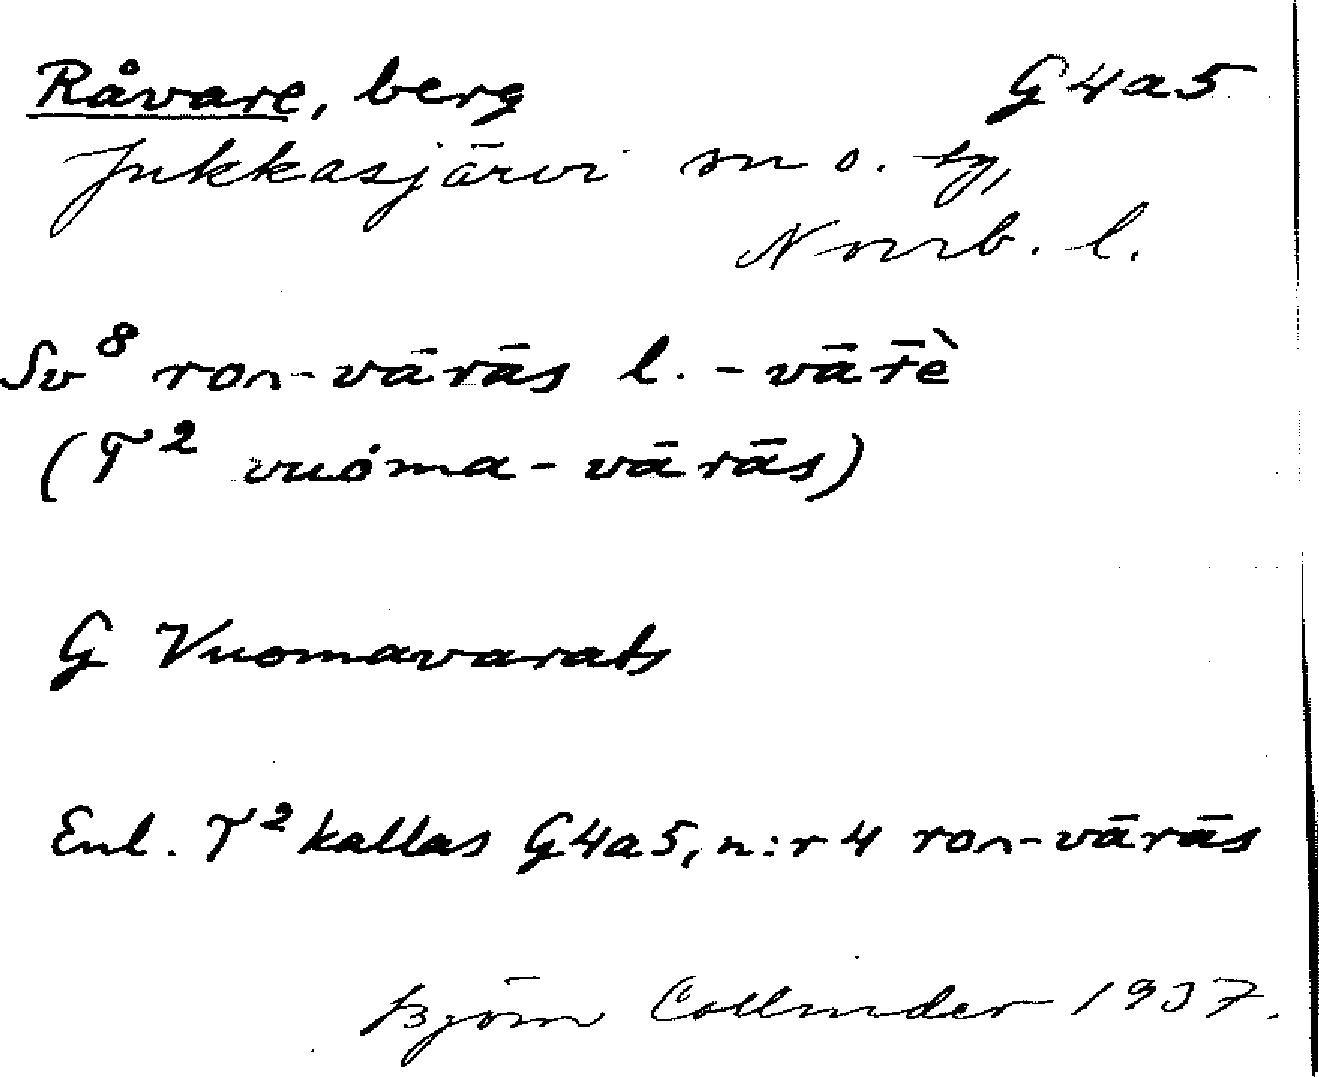 Råvare, berg G4a5
Jukkasjärvi sn o. tg,
Norrb. l.
Sv⁸ ron-vārās l. -vār̄è
(T² vuȯma-vārās)
G Vuomavarats
Enl. T² kallas G4a5, n:r 4 ron-vārās
Björn Collinder 1937.